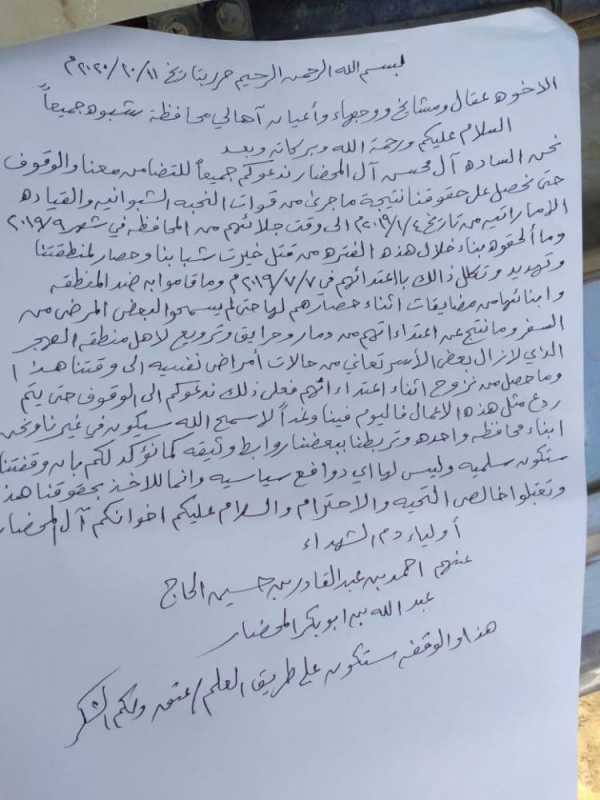 بسم الله الرحمن الرحيم حرر بتاريخ ٢٠٢٠/١٠/١١م
الاخوه عقال ومشائخ ووجهاء وأعيان آهالي محافظة شبوه جميعاً
السلام عليكم ورحمة الله وبركاته وبعد
نحن الساده آل محسن آل المحضار ندعوكم جميعاً للتضامن معنا والوقوف
حتى نحصل على حقوقنا نتيجة ما جرى من قوات النخبه الشبوانيه والقياده
الاماراتيه من تاريخ ٢٠١٩/١/٤م الى وقت جلائهم من المحافظه في شهر ٢٠١٩/٩
وما ألحقوه بناء خلال هذه الفتره من قتل خيرت شبابنا وحصار لمنطقتنا
وتهديد وتكلل ذالك بااعتدائهم في ٢٠١٩/٧/٧م وما قاموا به ضد المنطقه
وابنائها من مضايقات اثناء حصارهم لها حتى لم يسمحوا لبعض المرضى من
السفر وما نتج عن اعتداءاتهم من دمار وحرايق وترويع لاهل منطقه الهجر
الذي لازال بعض الأسر تعاني من حالات أمراض نفسيه الى وقتنا هذا
وما حصل من نزوح اثناء اعتداءاتهم فعلى ذلك ندعوكم الى الوقوف حتى يتم
ردع مثل هذه الاعمال فاليوم فينا وغداً لاسمح الله سيكون في غيرنا ونحن
ابناء محافظه واحده وتربطنا ببعضنا روابط وثيقه كما نؤكد لكم بان وقفتنا
ستكون سلميه وليس لها اي دوافع سياسيه وانما للاخذ بحقوقنا هذا
وتقبلوا خالص التحيه والاحترام والسلام عليكم اخوانكم آل المحضار
أولياء دم الشهداء
عنهم احمد بن عبدالقادر بن حسين الحاج
عبدالله بن ابوبكر المحضار
هذا والوقفه ستكون على طريق العلم / عتق ولكم الشكر